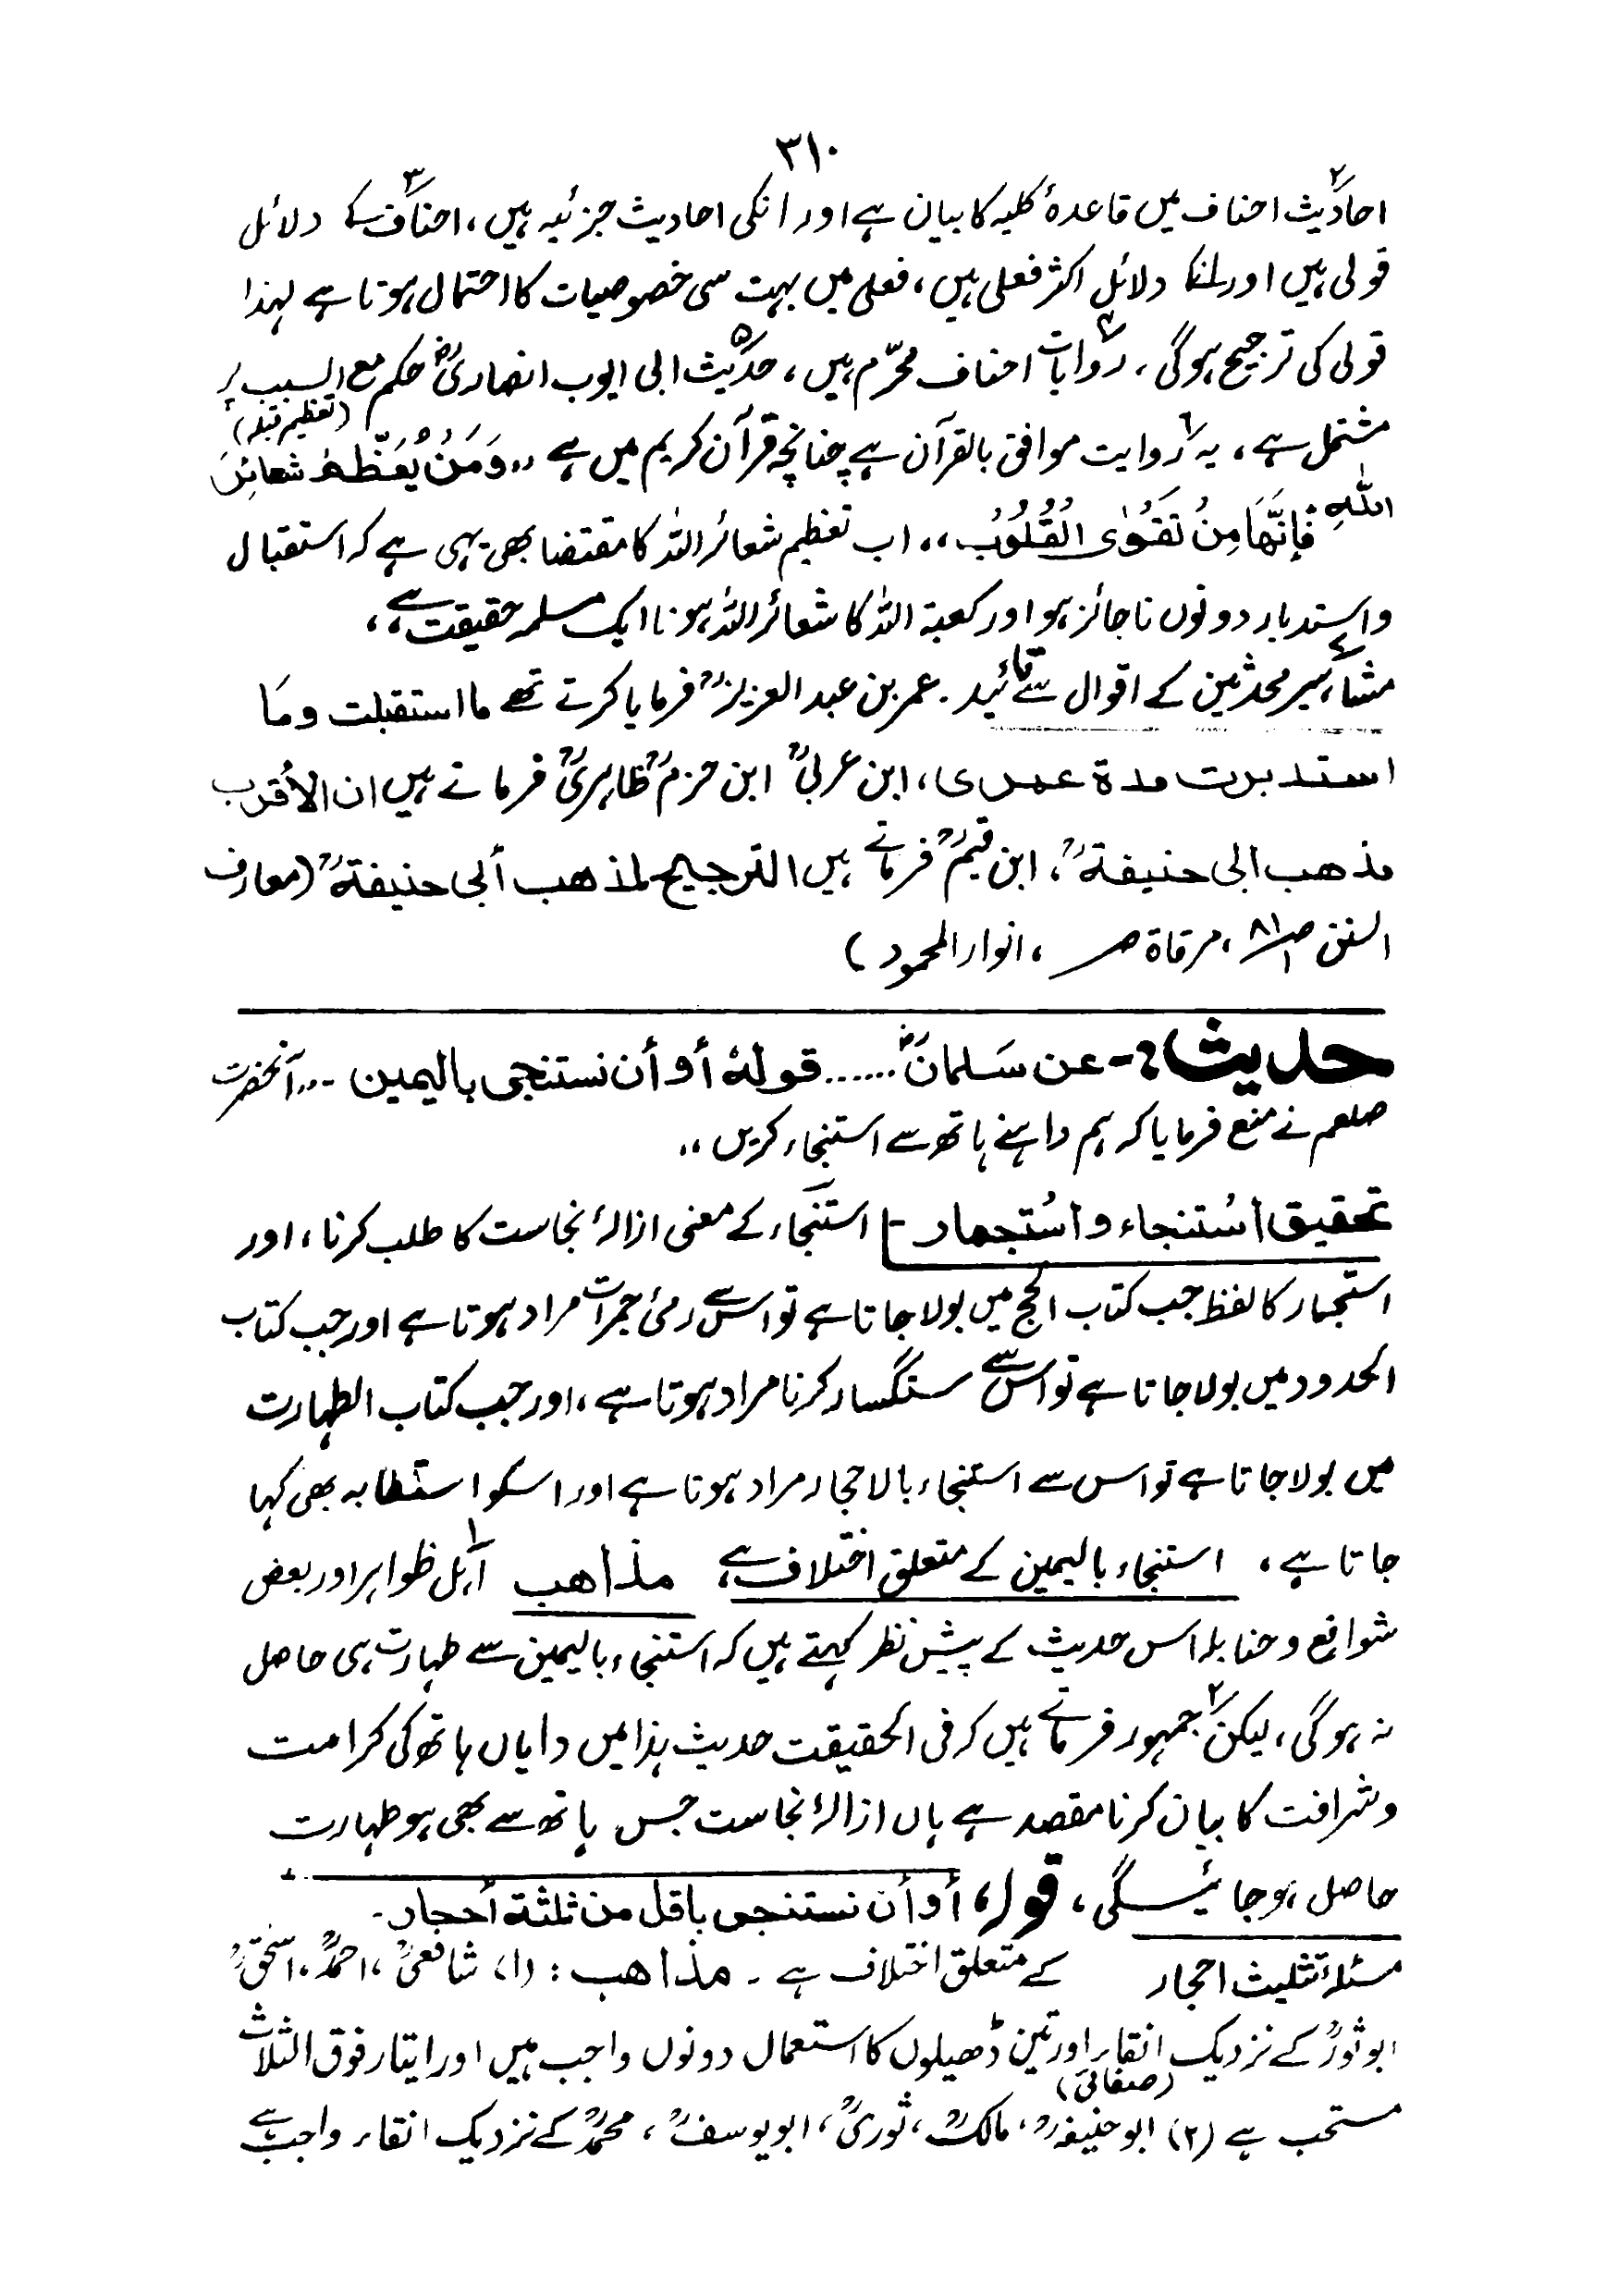 ۳۱۰
۲؎ احادیث احناف میں قاعدۂ کلیہ کا بیان ہے اور انکی احادیث جزئیہ ہیں، ۳؎ احناف کے دلائل
قولی ہیں اور انکے دلائل اکثر فعلی ہیں، فعلی میں بہت سی خصوصیات کا احتمال ہوتا ہے لہذا
قولی کی ترجیح ہوگی، ۴؎ روایات احناف محرّم ہیں، ۵؎ حدیث ابی ایوب انصاریؓ حکم مع السبب پر
(تعظیم قبلہ)
مشتمل ہے، ۶؎ یہ روایت موافق بالقرآن ہے چنانچہ قرآن کریم میں ہے ،، وَمَنْ يُعَظِّمْ شعائرَ
اللهِ فَإِنَّهَا مِنْ تَقْوَى الْقُلُوْبِ ،، اب تعظیم شعائر اللہ کا مقتضا بھی یہی ہے کہ استقبال
واستدبار دونوں ناجائز ہو اور کعبۃ اللہ کا شعائر اللہ ہونا ایک مسلمہ حقیقت ہے،
۷؎ مشاہیر محدثین کے اقوال سے تائید۔ عمر بن عبد العزیزؒ فرمایا کرتے تھے ما استقبلت وما
استدبرت مدة عمری، ابن عربیؒ ابن حزمؒ ظاہریؒ فرماتے ہیں ان الأقرب
مذهب ابی حنيفةؒ، ابن قیمؒ فرماتے ہیں الترجیح لمذهب أبی حنيفةؒ (معارف
السنن ص۸۱/۱، مرقاة ص ، انوار المحمود)
حديث:- عن سَلمانؓ ...... قولهٗ أو أن نستنجی بالیمین ،،آنحضرت
صلعم نے منع فرمایا کہ ہم داہنے ہاتھ سے استنجاء کریں ،،
تحقیق اسْتنجاء و اسْتجمار - استنجاء کے معنی ازالۂ نجاست کا طلب کرنا، اور
استجمار کا لفظ جب کتاب الحج میں بولا جاتا ہے تو اس سے رمئ جمرات مراد ہوتا ہے اور جب کتاب
الحدود میں بولا جاتا ہے تو اس سے سنگسار کرنا مراد ہوتا ہے، اور جب کتاب الطہارت
میں بولا جاتا ہے تو اس سے استنجاء بالاحجار مراد ہوتا ہے اور اسکو استطابہ بھی کہا
جاتا ہے، استنجاء بالیمین کے متعلق اختلاف ہے، مذاهب ۱؎ اہل ظواہر اور بعض
شوافع و حنابلہ اس حدیث کے پیش نظر کہتے ہیں کہ استنجاء بالیمین سے طہارت ہی حاصل
نہ ہوگی، لیکن ۲؎ جمہور فرماتے ہیں کہ فی الحقیقت حدیث ہذا میں دایاں ہاتھ کی کرامت
و شرافت کا بیان کرنا مقصد ہے ہاں ازالۂ نجاست جس ہاتھ سے بھی ہو طہارت
حاصل ہو جائیگی، قوله، أو أن نستنجی باقل من ثلثة أحجار۔
مسئلۂ تثلیث احجار کے متعلق اختلاف ہے ۔ مذاهب : (۱) شافعیؒ، احمدؒ، اسحٰقؒ
ابو ثورؒ کے نزدیک انقاء اور تین ڈھیلوں کا استعمال دونوں واجب ہیں اور ایتار فوق الثلاث
(صفائی)
مستحب ہے (۲) ابو حنیفہؒ، مالکؒ، ثوریؒ، ابو یوسفؒ، محمدؒ کے نزدیک انقاء واجب ہے